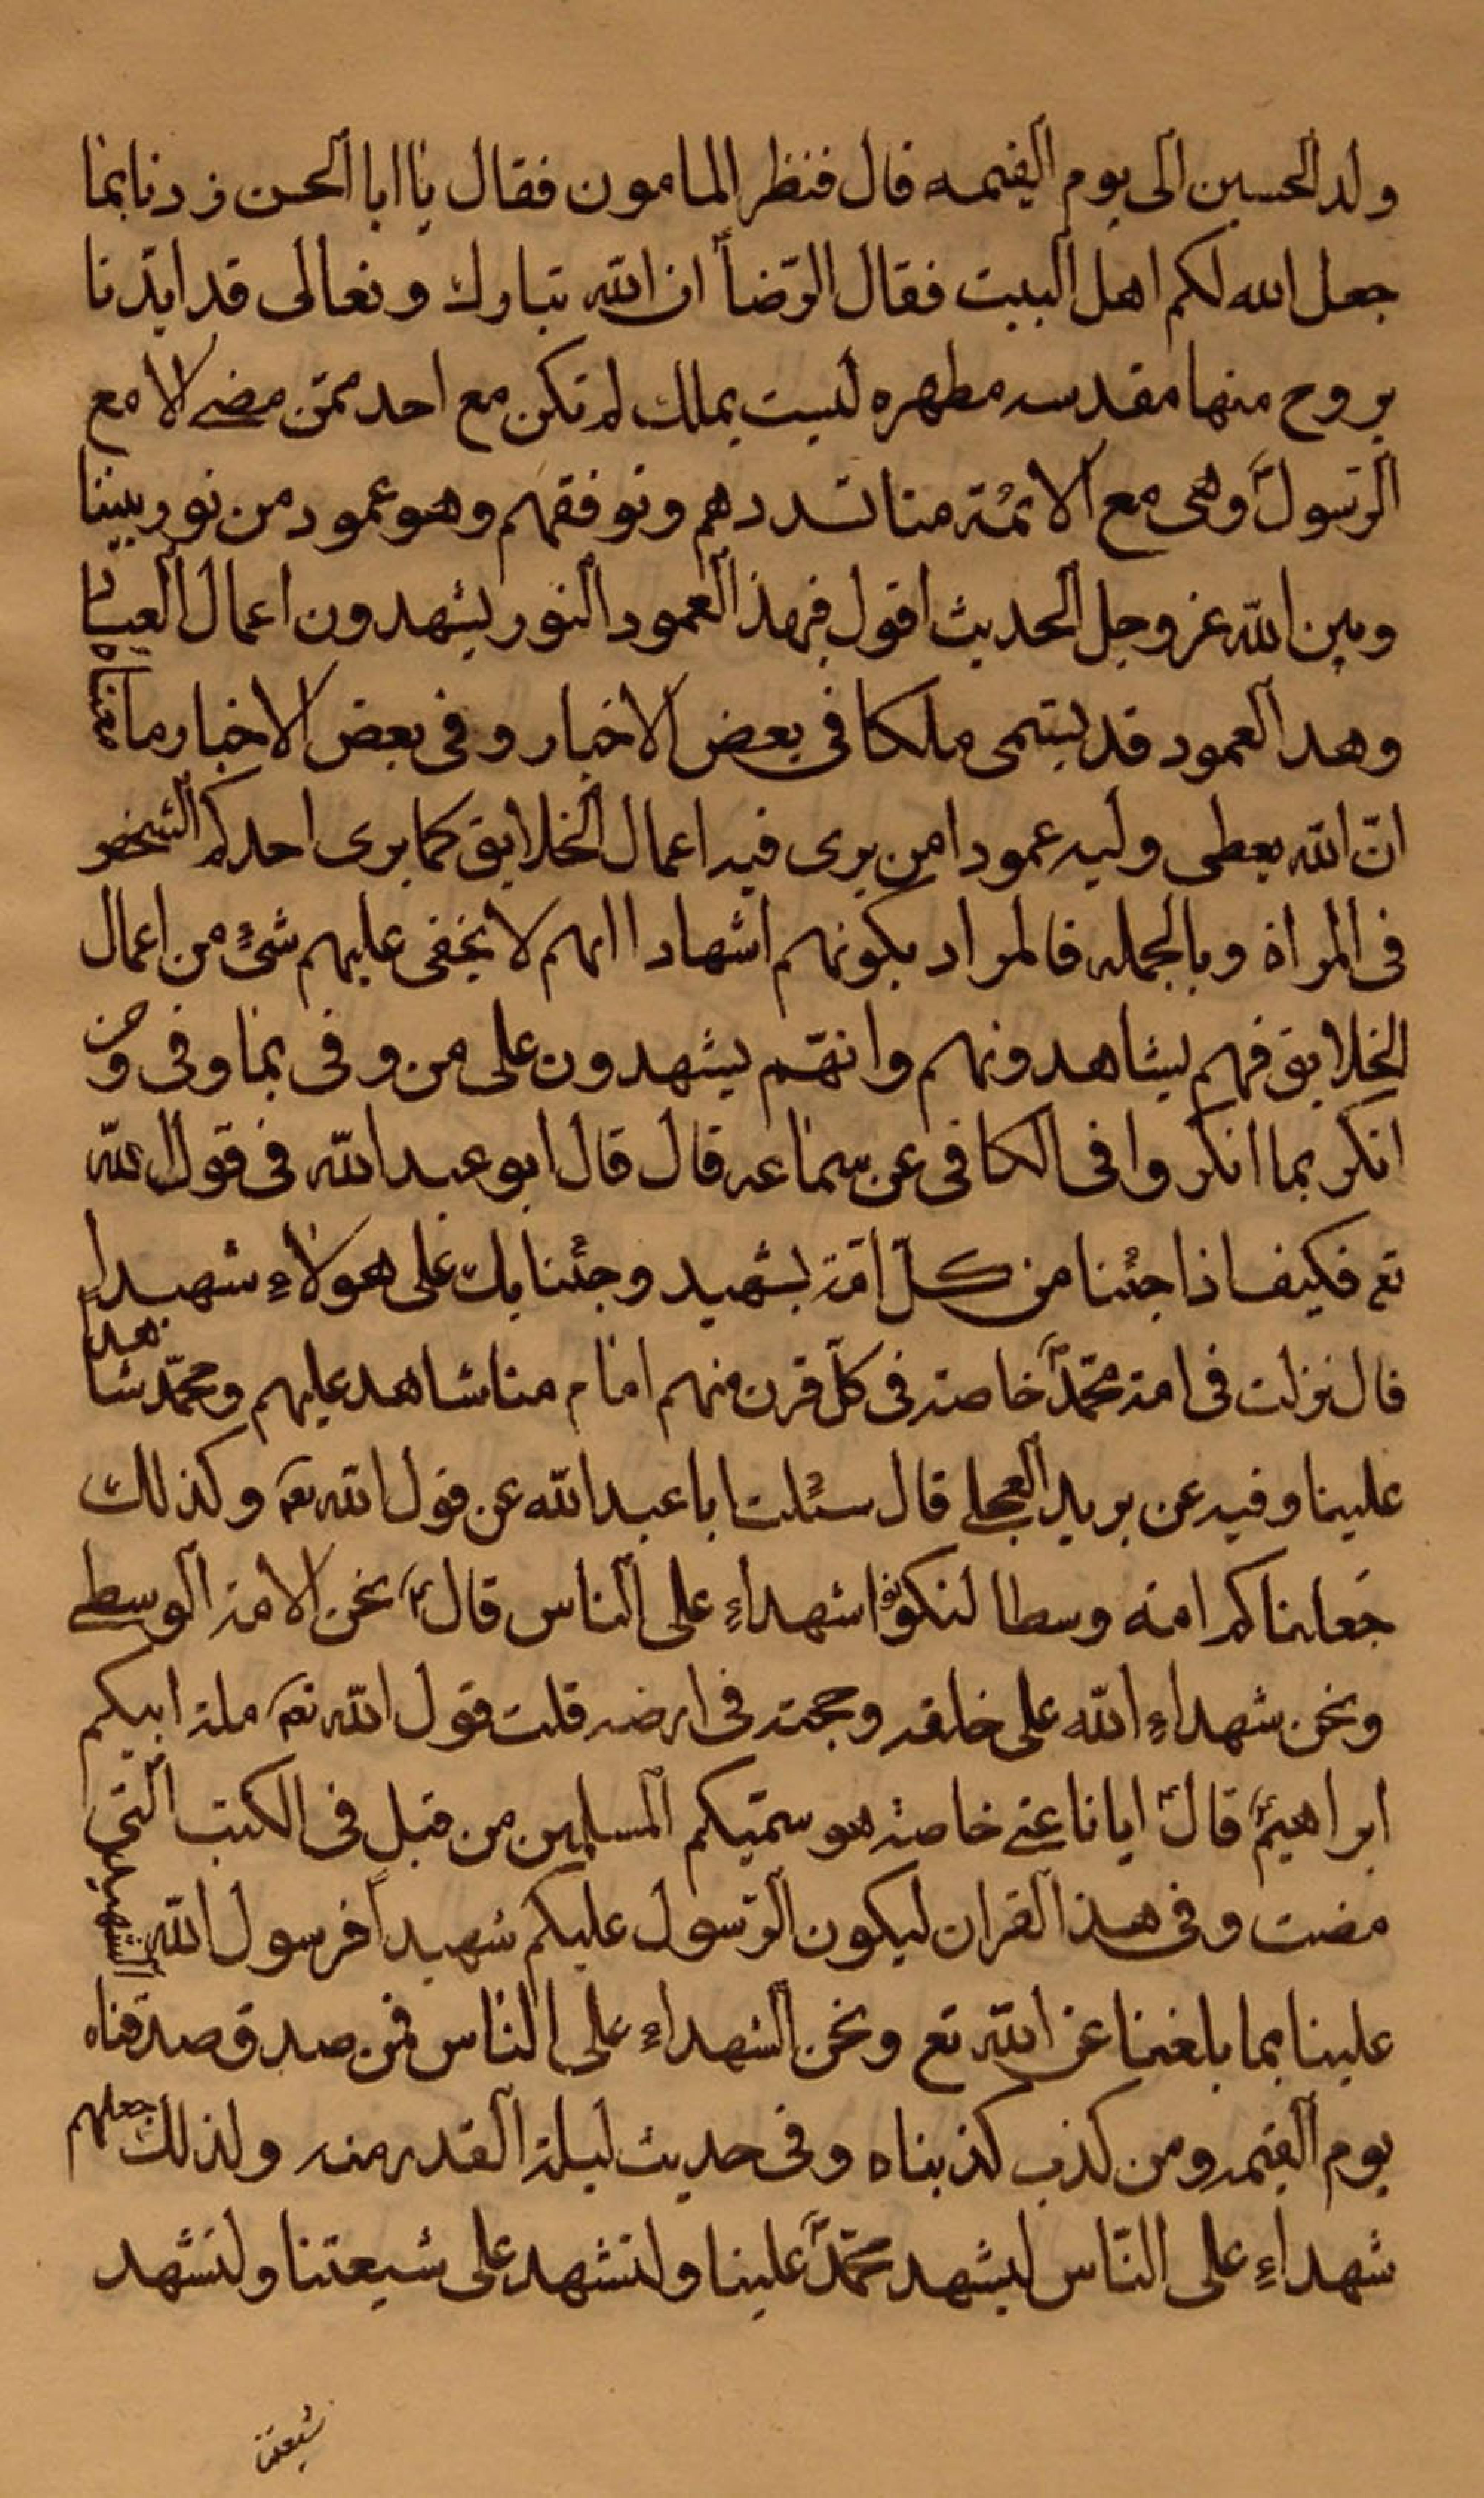 ولد الحسين الى يوم القيمه قال فنظر المامون فقال يا ابا الحسن زدنا بما
جعل الله لكم اهل البيت فقال الرّضاء ان الله تبارك وتعالى قد ايّدنا
بروح منها مقدسه مطهره ليست بملك لم تكن مع احد ممّن مضى الا مع
الرّسولؐ وهى مع الائمّة منا تسددهم وتوفقهم وهو عمود من نور بيننا
وبين الله عز وجل الحديث اقول فبهذ العمود النور يشهدون اعمال العباد
وهذ العمود قد يسمى ملكا فى بعض الاخبار وفى بعض الاخبار ما معناه
انّ الله يعطى وليه عمودا من يرى فيه اعمال الخلايق كما يرى احدكم الشخص
فى المراة وبالجمله فالمراد بكونهم اشهادا انهم لا يخفى عليهم شئ من اعمال
الخلايق فهم يشاهدونهم وانهّم يشهدون على من وفى بما وفى ومن
انكر بما انكر وا فى الكافى عن سماعه قال قال ابو عبد الله فى قول الله
تع فكيف اذا جئنا من كلّ امّة بشهيد وجئنا بك على هولاء شهيداء
قال نزلت فى امة محمّدؐ خاصة فى كلّ قرن منهم امام منا شاهد عليهم ومحمّد شاهد
علينا وفيه عن بريد العجلى قال سئلت ابا عبد الله عن قول الله تعم وكذلك
جعلناكم امة وسطا لتكونوا شهداء على الناس قالؑ نحن الامة الوسطى
ونحن شهداء الله على خلقه وحجته فى ارضه قلت قول الله تعم ملة ابيكم
ابراهيمؑ قالؑ ايانا عنى خاصة هو سمّيكم المسلمين من قبل فى الكتب التى
مضت وفى هذ القران ليكون الرّسول عليكم شهيداً فرسول الله الشهيد
علينا بما بلغنا عن الله تع ونحن الشهداء على الناس فمن صدق صدقناه
يوم القيمه ومن كذب كذبناه وفى حديث ليلة القدر منه ولذلك جعلهم
شهداء على النّاس ليشهد محمّدؐ علينا ولنشهد على شيعتنا ولتشهد
شيعتنا